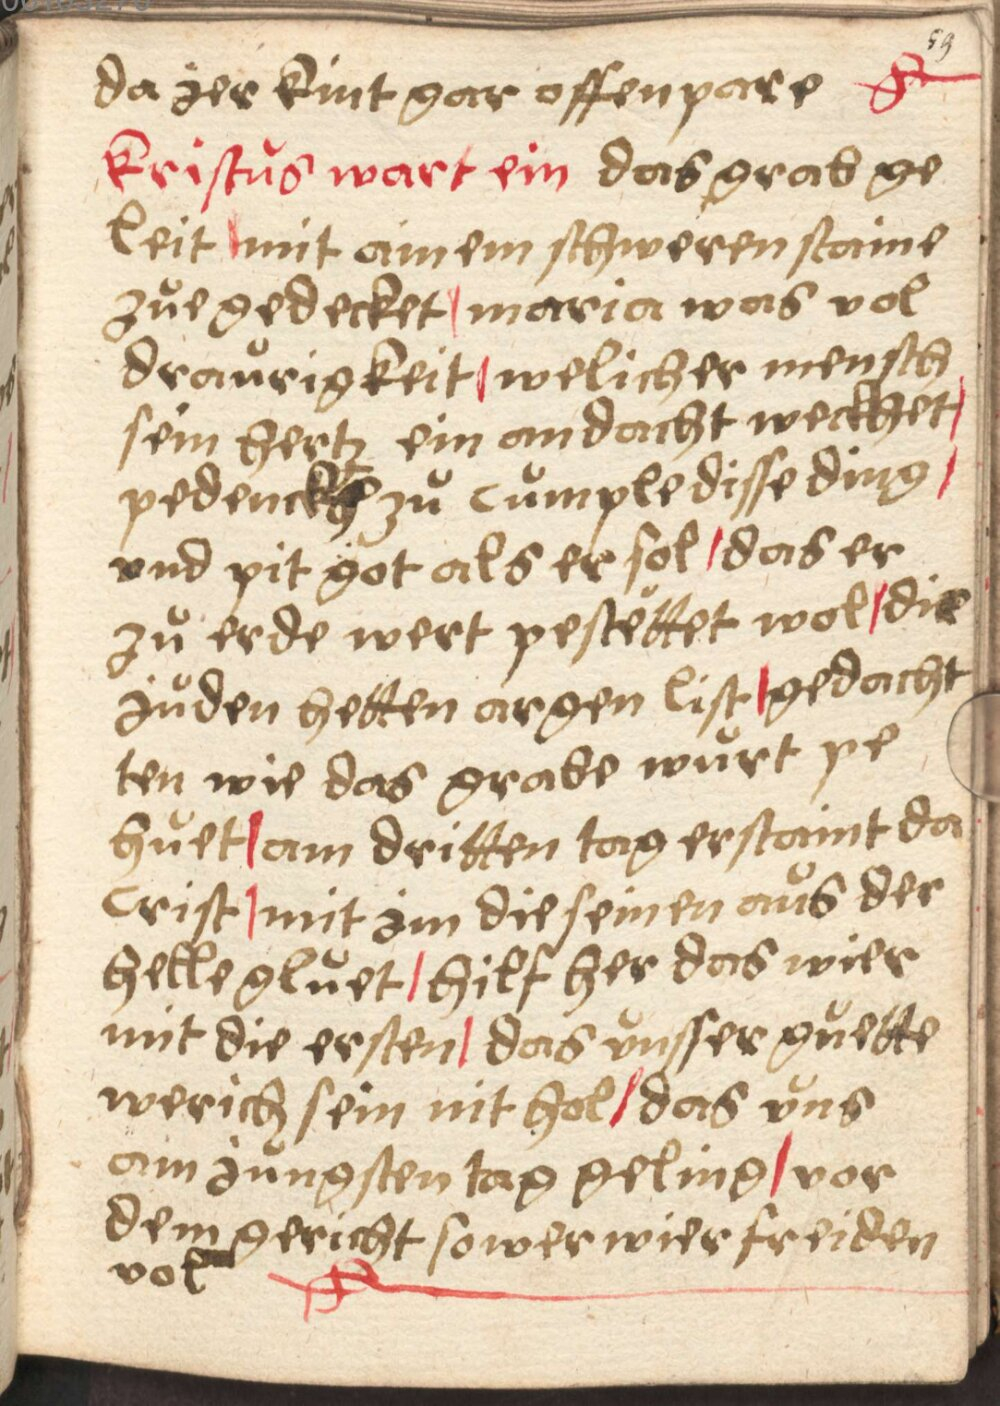 59
da jer kint gar offenpare
Kristůs wart ein das grab ge
leit / mit ainem schweren staine
zůe gedecket / maria was vol
draůrigkeit / welicher mensch
sein hertz ein andacht weckhet /
pedenckh zů Cůmple disse ding /
vnd pit got als er sol / das er
zů erde wert pestëttet wol / die
jůden hetten argen list / gedacht
ten wie das grabe wůrt pe
hůet / am dritten tag erstaint da
Crist / mit jm die seinen aůs der
helle glůet / hilf her das wier
mit die ersten / das ůnsser gůette
werich sein nit hol / das ůns
am jůngsten tag geling / vor
dem gericht so wer wier freiden
vol